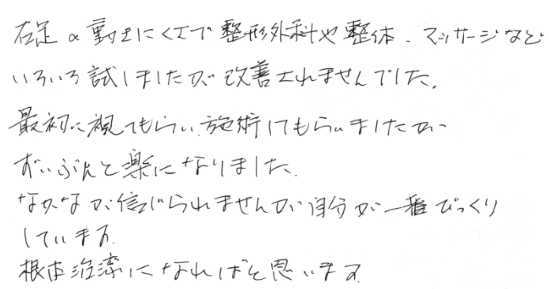 右足の動きにくさで整形外科や整体、マッサージなど
いろいろ試しましたが改善されませんでした。
最初に視てもらい施術してもらいましたが
ずいぶんと楽になりました。
なかなか信じられませんが自分が一番びっくり
しています。
根本治療になればと思います。